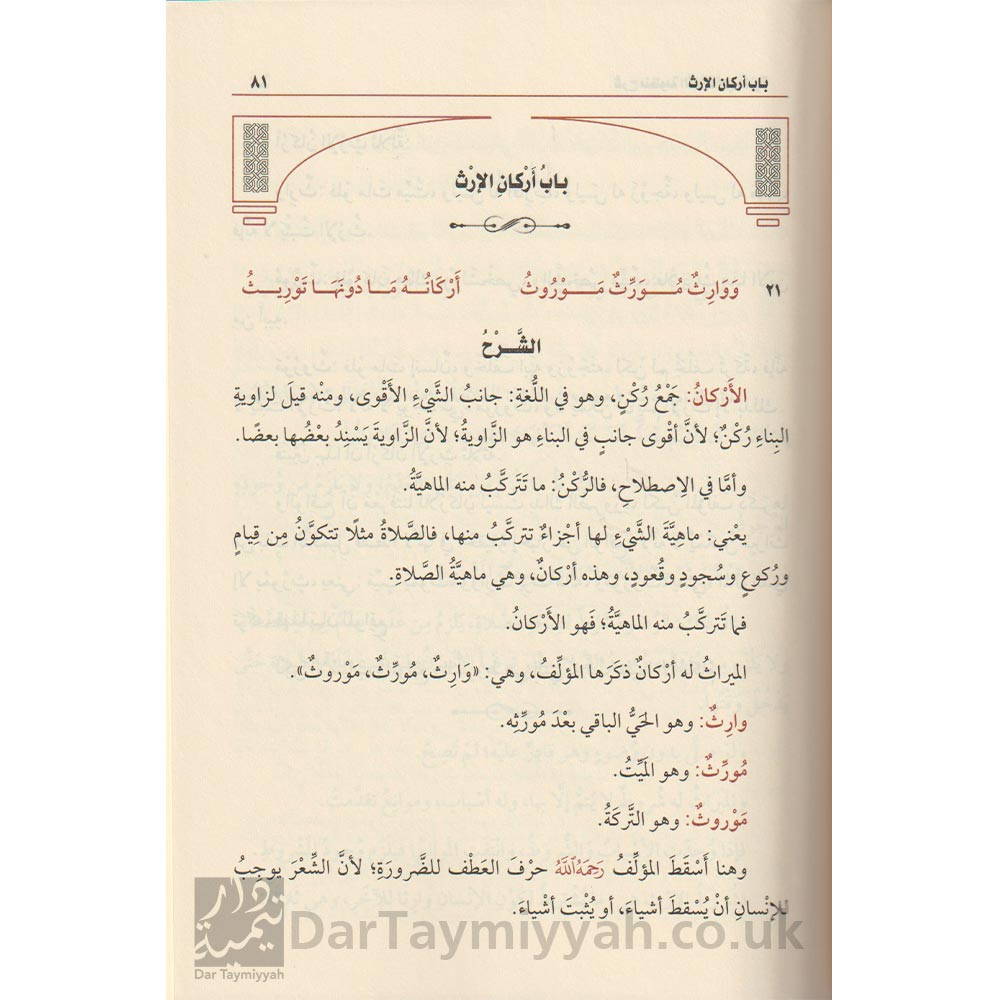 باب أركان الإرث ٨١
بابُ أَرْكانِ الإرْثِ
٢١ وَوَارِثٌ مُــوَرِّثٌ مَــوْرُوثُ أَرْكَانُـهُ مَـا دُونَهَـا تَوْرِيـثُ
الشَّــرْحُ
الأَرْكانُ: جَمْعُ رُكْنٍ، وهو في اللُّغةِ: جانبُ الشَّيْءِ الأَقْوى، ومنْه قيلَ لزاويةِ
البِناءِ رُكْنٌ؛ لأنَّ أقْوى جانبٍ في البناءِ هو الزَّاويةُ؛ لأنَّ الزَّاويةَ يَسْنِدُ بعْضُها بعضًا.
وأمَّا في الِاصطلاحِ، فالرُّكْنُ: ما تَتَركَّبُ منه الماهيَّةُ.
يعْني: ماهيَّةَ الشَّيْءِ لها أجْزاءٌ تتركَّبُ منها، فالصَّلاةُ مثلًا تتكوَّنُ مِن قِيامٍ
ورُكوعٍ وسُجودٍ وقُعودٍ، وهذه أرْكانٌ، وهي ماهيَّةُ الصَّلاةِ.
فما تَتركَّبُ منه الماهيَّةُ؛ فهو الأَرْكانُ.
الميراثُ له أرْكانٌ ذكَرَها المؤلِّفُ، وهي: «وَارِثٌ، مُورِّثٌ، مَوْروثٌ».
وارِثٌ: وهو الحَيُّ الباقي بعْدَ مُورِّثِه.
مُورِّثٌ: وهو المَيِّتُ.
مَوْروثٌ: وهو التَّرِكَةُ.
وهنا أَسْقَطَ المؤلِّفُ رَحِمَهُ ٱللَّهُ حرْفَ العَطْف للضَّرورَةِ؛ لأنَّ الشِّعْرَ يوجِبُ
للإنْسانِ أنْ يُسْقطَ أشياءَ، أو يُثْبتَ أشْياءَ.
دار تيمية
Dar Taymiyyah
DarTaymiyyah.co.uk